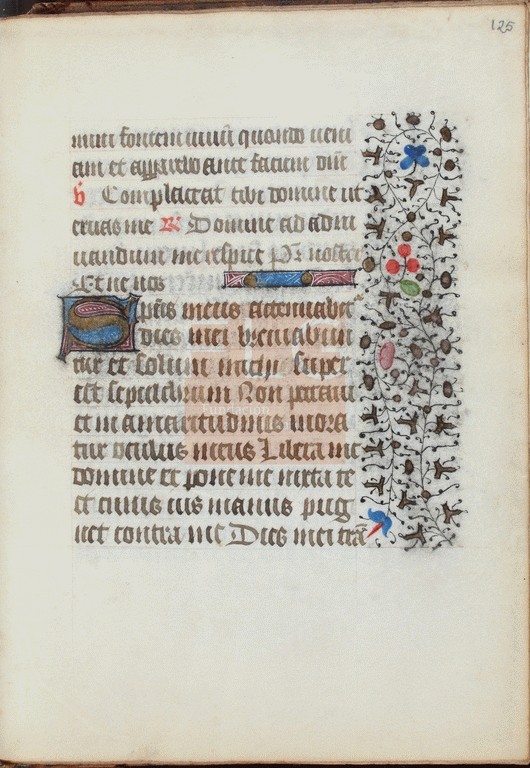 125
mum fontem uiuū quando ueni
am et apparebo ante faciem dn̄i
v̄ Complaceat tibi domine ut
eruas me R̄ Domine ad adiu
uandum me respice Pr̄ noster
Et ne nos
Spūs meus attenuabit᷑
dies mei breuiabun
tur et solum michi super
est sepulchrum Non peccaui
et in amaritudinibus mora
tur oculus meus Libera me
domine et pone me iuxta te
et cuius uis manus pug
net contra me Dies mei trā